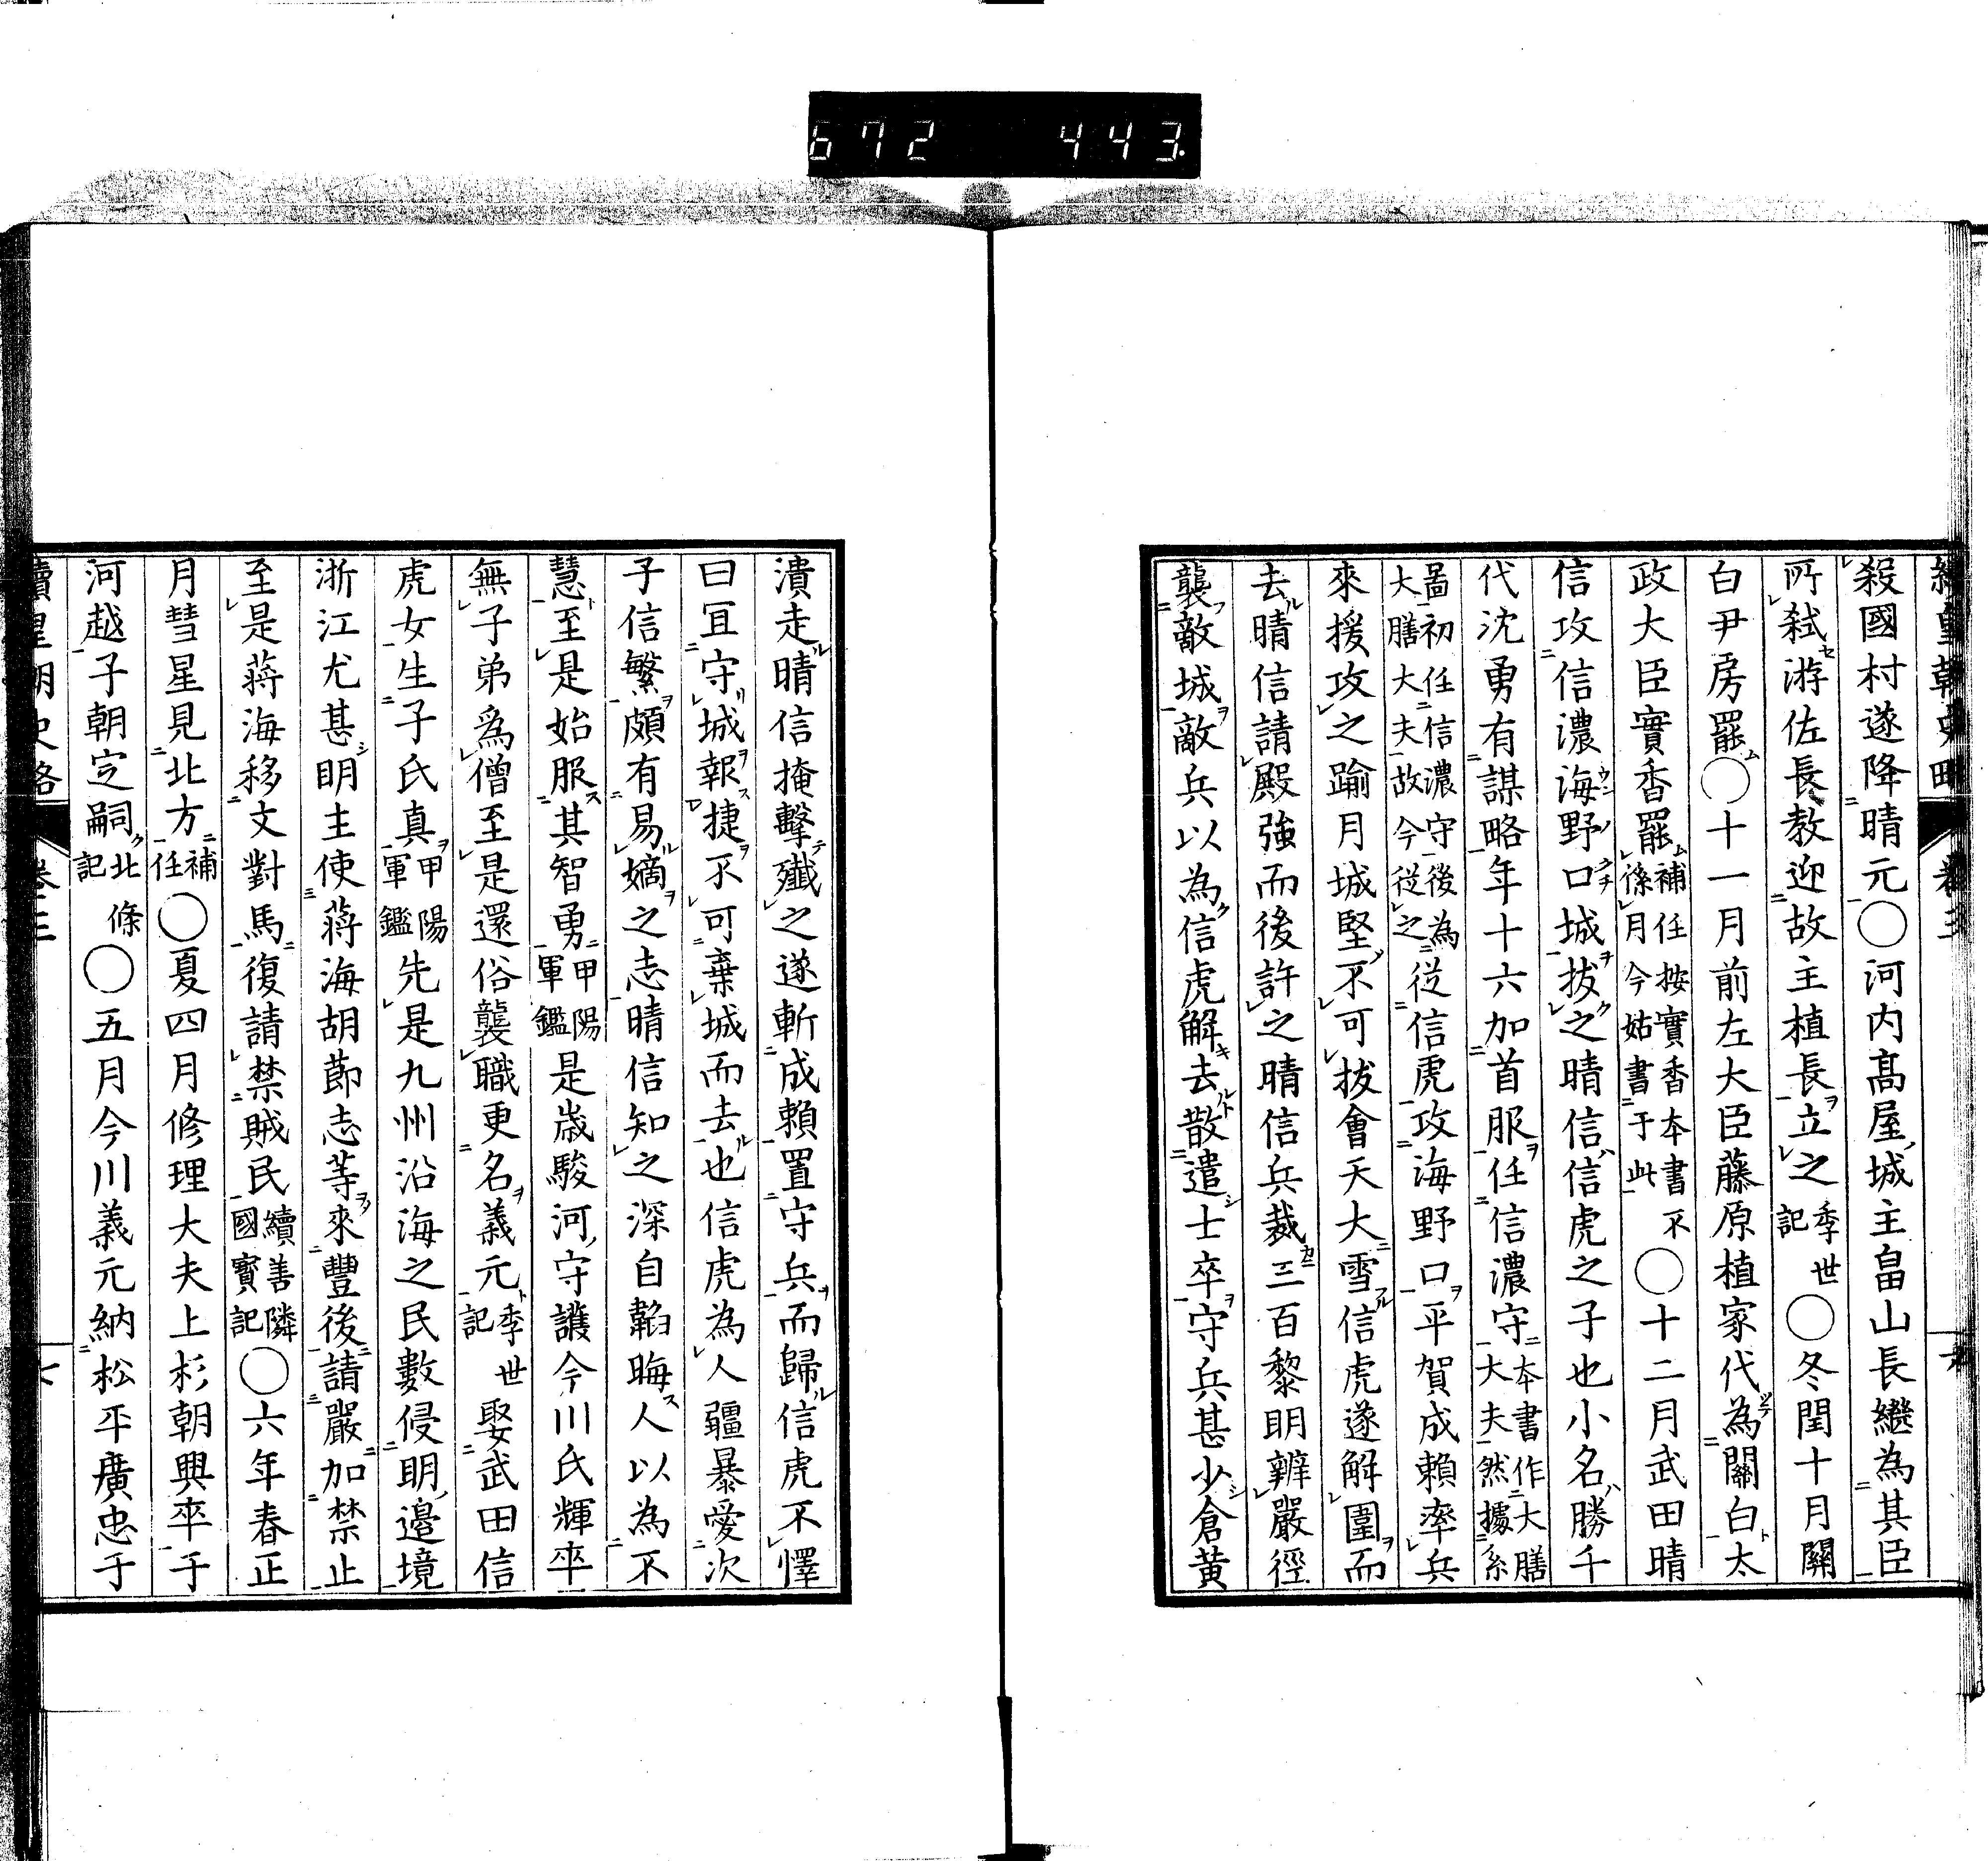 672 443
續皇朝史略 卷三
殺國村遂降晴元○河内髙屋城主畠山長繼為其臣
所弑游佐長敎迎故主植長立之季世記○冬閏十月關
白尹房罷○十一月前左大臣藤原植家代為關白太
政大臣實香罷補任按實香本書不係月今姑書于此○十二月武田晴
信攻信濃海野口城拔之晴信信虎之子也小名勝千
代沈勇有謀略年十六加首服任信濃守大夫本書作大膳大夫然據系
圖初任信濃守後為大膳大夫故今從之從信虎攻海野口平賀成賴率兵
來援攻之踰月城堅不可拔會天大雪信虎遂解圍而
去晴信請殿強而後許之晴信兵裁三百黎明辦嚴徑
襲敵城敵兵以為信虎解去散遣士卒守兵甚少倉黄
潰走晴信掩擊殲之遂斬成賴置守兵而歸信虎不懌
曰宜守城報捷不可棄城而去也信虎為人疆暴愛次
子信繁頗有易嫡之志晴信知之深自韜晦人以為不
慧至是始服其智勇甲陽軍鑑是歳駿河守護今川氏輝卒
無子弟爲僧至是還俗襲職更名義元季世記娶武田信
虎女生子氏真甲陽軍鑑先是九州沿海之民數侵明邊境
浙江尤甚明主使蔣海胡節志等來豐後請嚴加禁止
至是蔣海移文對馬復請禁賊民續善隣國寳記○六年春正
月彗星見北方補任○夏四月修理大夫上杉朝興卒于
河越子朝定嗣北條記○五月今川義元納松平廣忠于
續皇朝史略 卷三 七